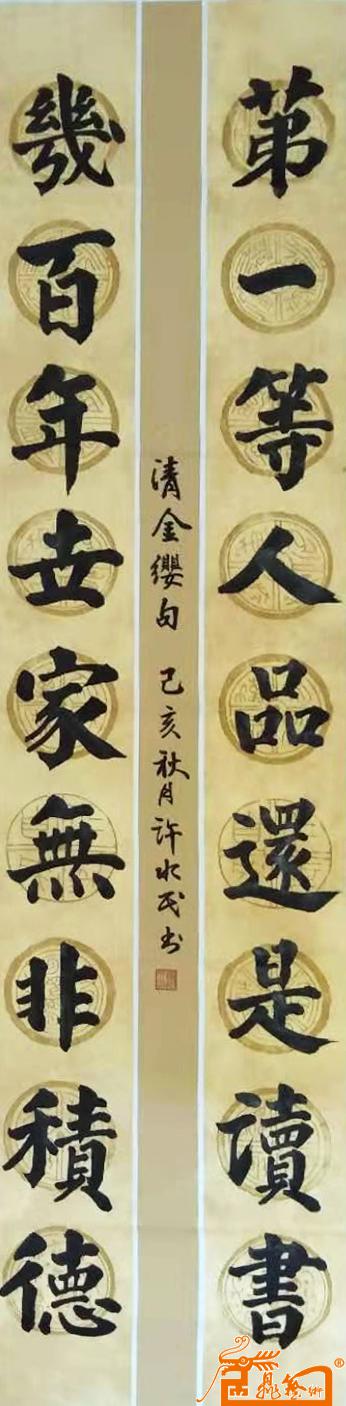 苐一等人品還是讀書
幾百年世家無非積德
清金纓句 己亥秋月許水民书
鼎藝術
®